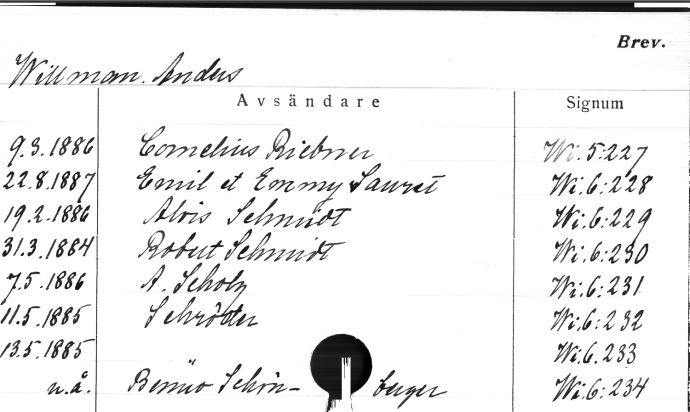 Brev.
Willman. Anders
Avsändare Signum
9.3.1886 Cornelius Riebner Wi. 5:227
22.8.1887 Emil et Emmy Sauret Wi. 6:228
19.2.1886 Alois Schmidt Wi. 6:229
31.3.1884 Robert Schmidt Wi. 6:230
7.5.1886 A. Scholz Wi. 6:231
11.5.1885 Schröder Wi. 6:232
13.5.1885 Wi. 6.233
u.å. Benno Schön- berger Wi. 6:234